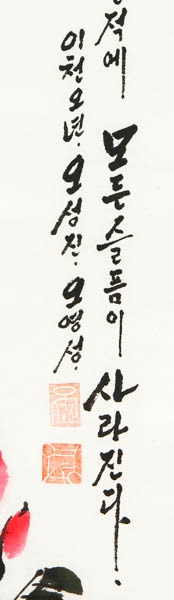 적에 모든 슬픔이 사라진다.
이천오년. 오성진. 오영성.